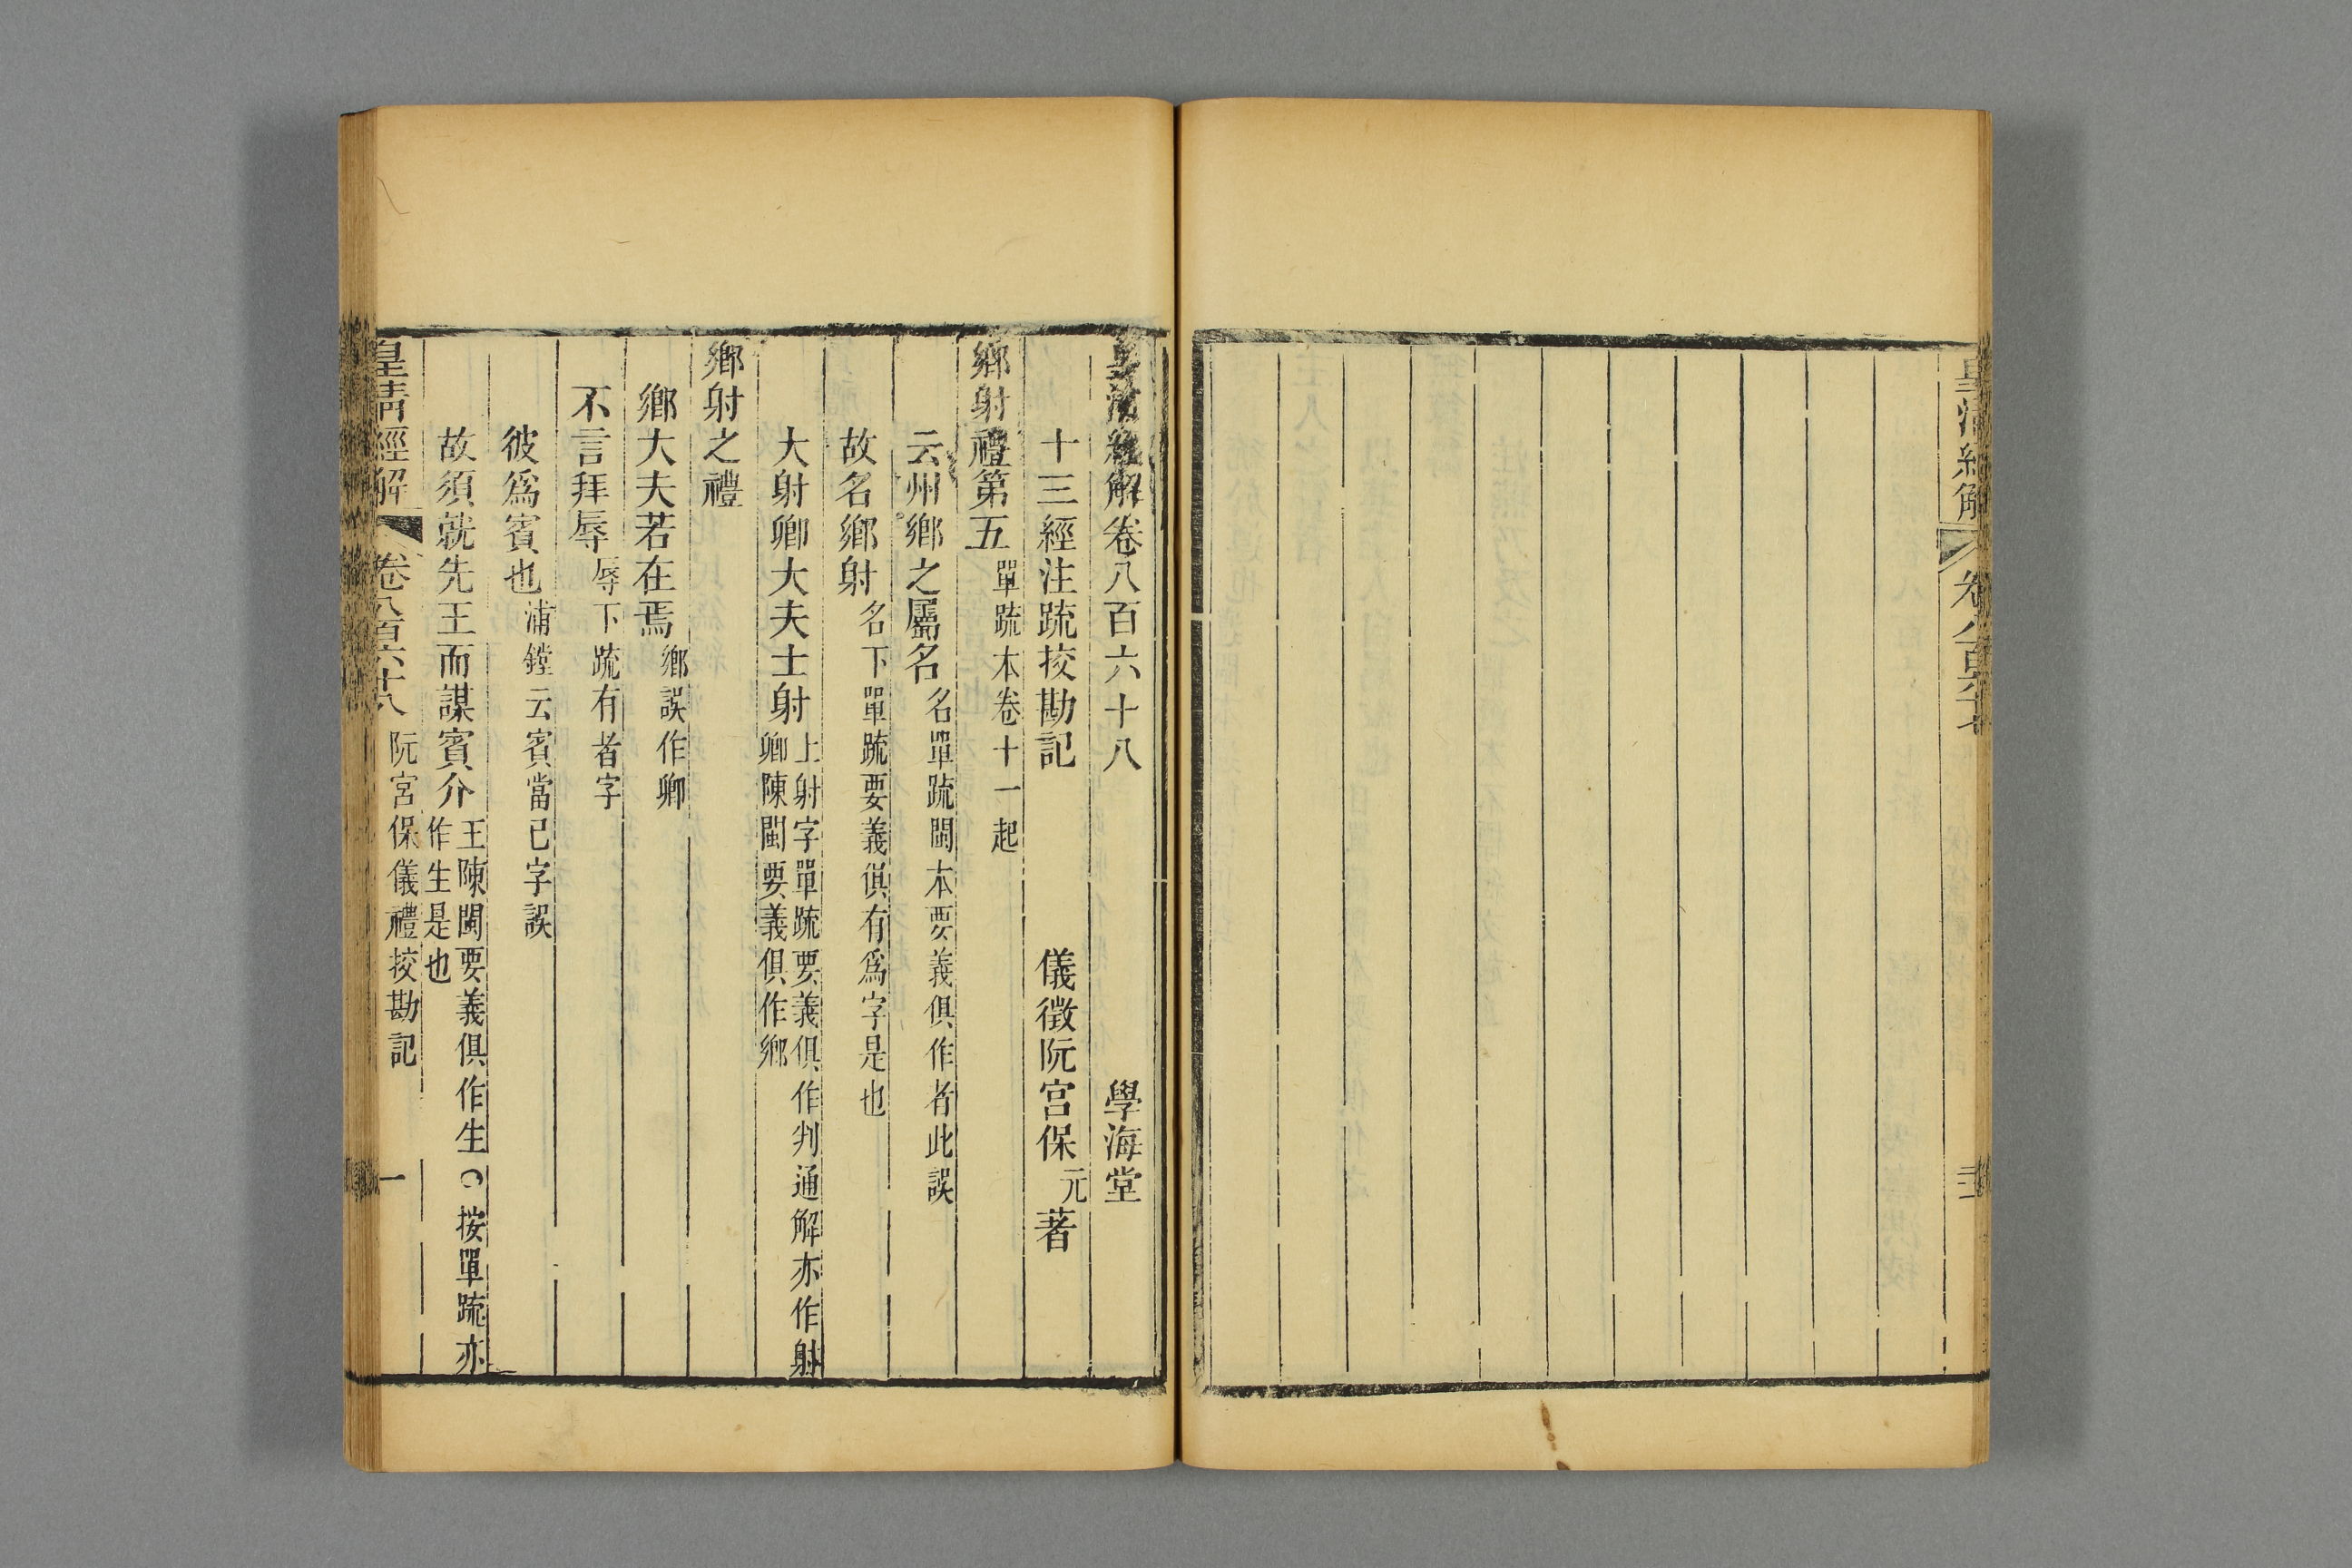 皇清經解 卷八百六十七
皇清經解卷八百六十八 學海堂
十三經注䟽挍勘記 儀徵阮宮保元著
鄉射禮第五 單䟽本卷十一起
云州鄉之屬名 名單䟽閩本要義俱作者此誤
故名鄉射 名下單䟽要義俱有爲字是也
大射卿大夫士射 上射字單䟽要義俱作判通解亦作射
卿陳閩要義俱作鄉
鄉射之禮
鄉大夫若在焉 鄉誤作卿
不言拜辱 辱下䟽有者字
彼爲賓也 浦鏜云賓當已字誤
故須就先王而謀賓介 王陳閩要義俱作生○按單䟽亦
作生是也
皇清經解 卷八百六十八 阮宮保儀禮挍勘記 一